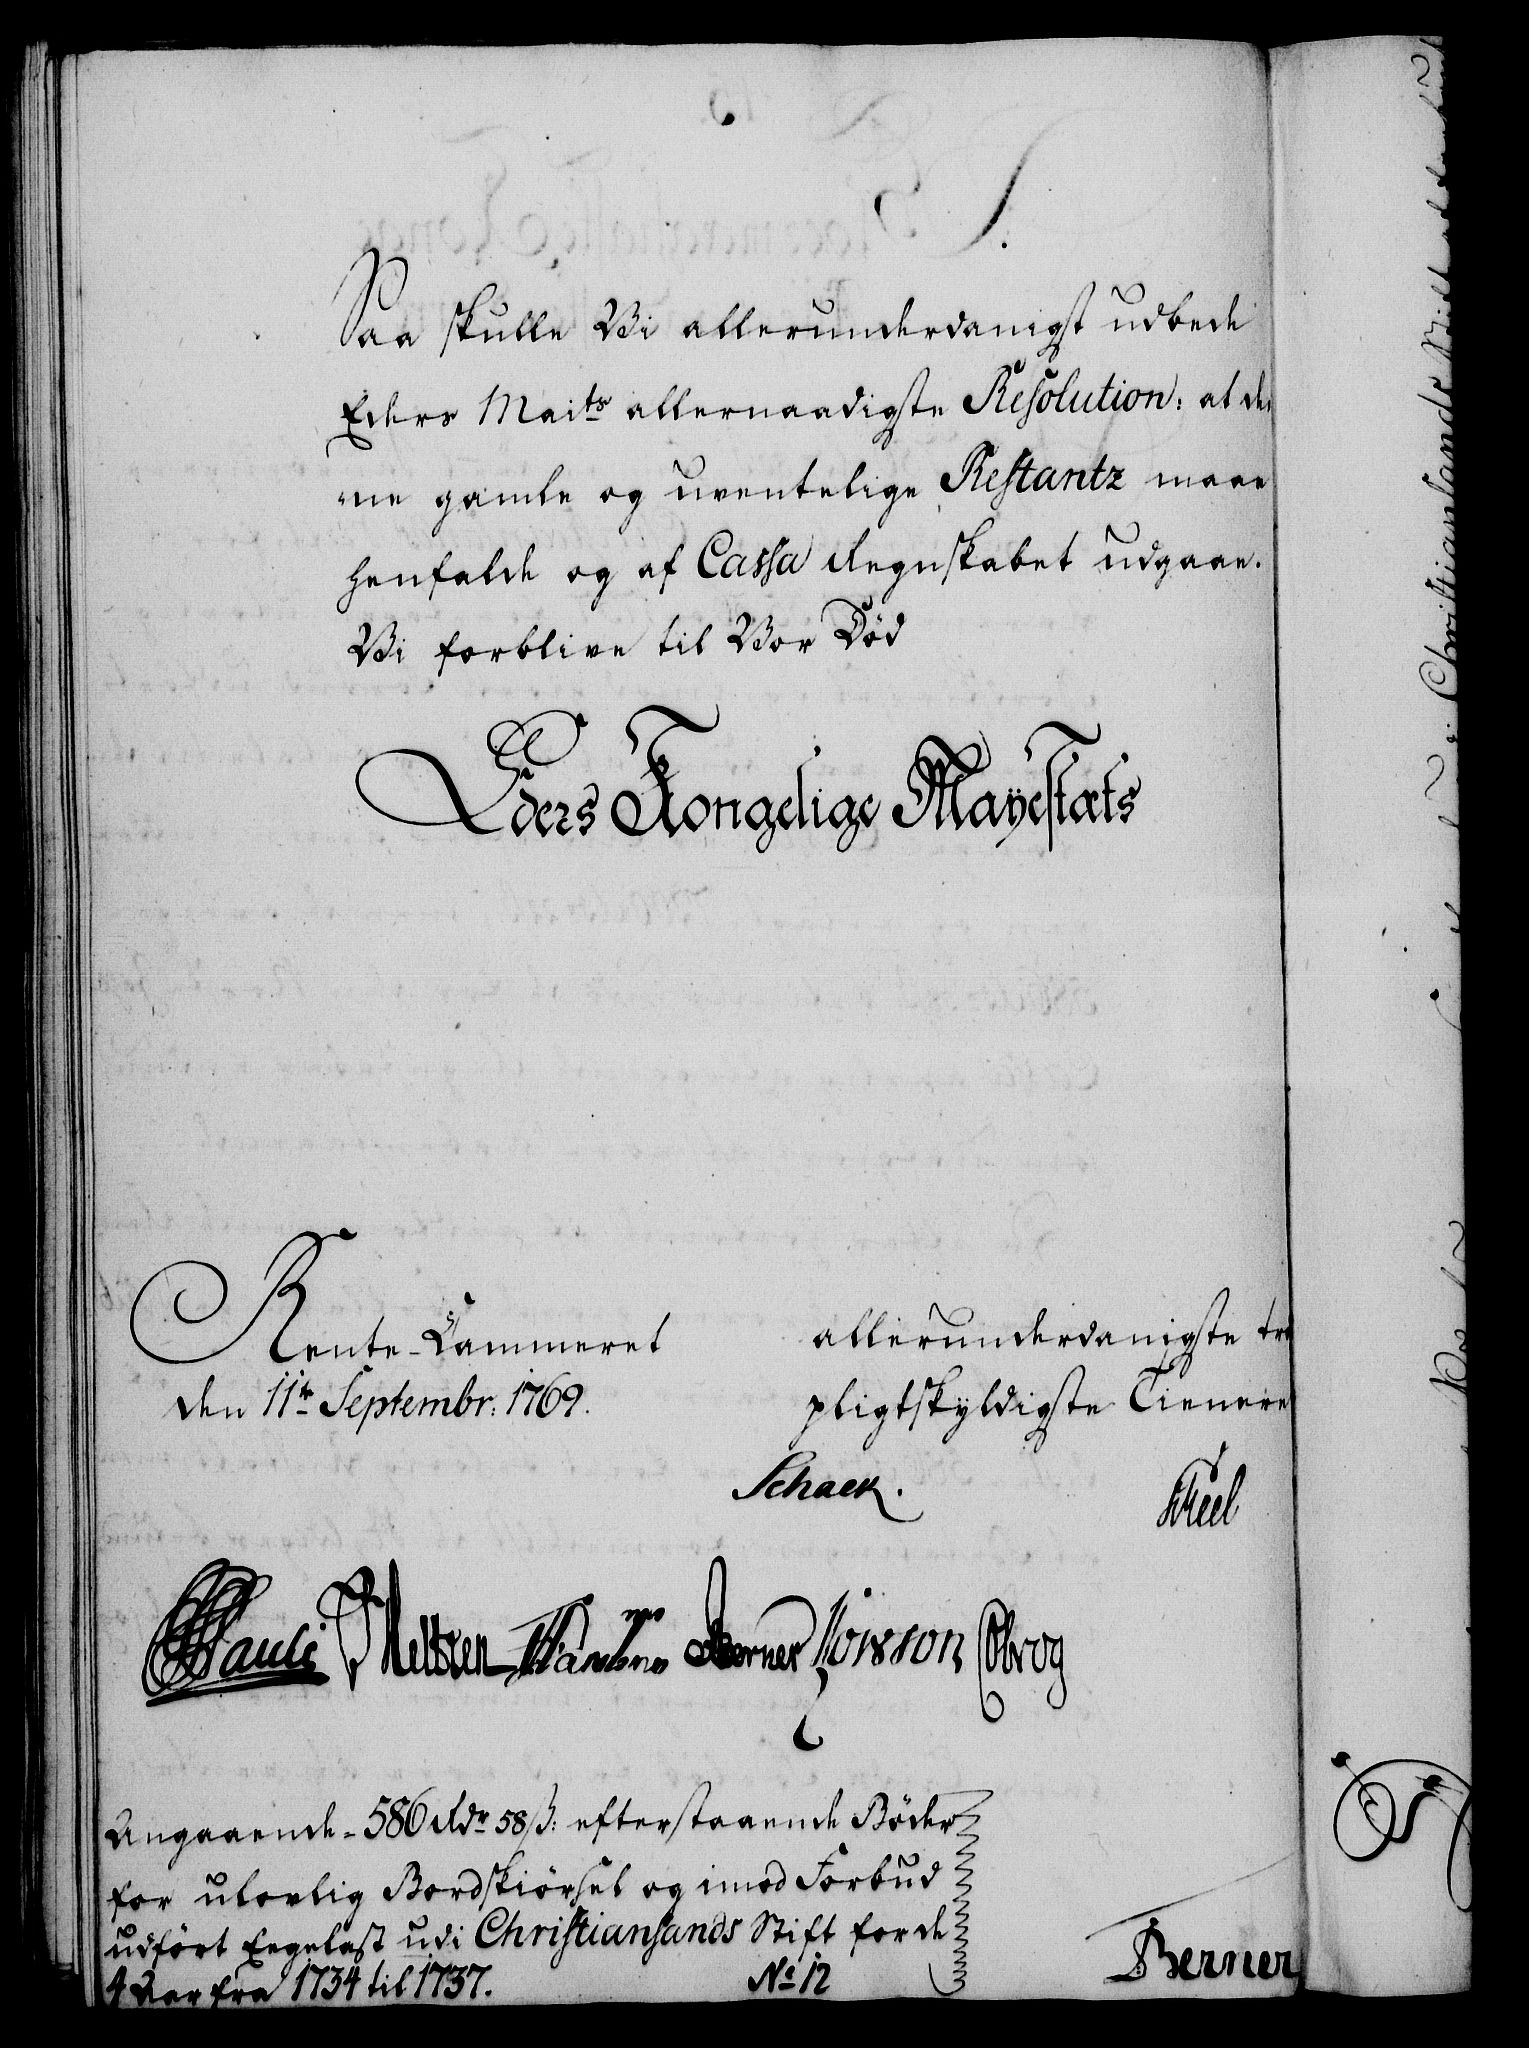 Saa skulle Vi allerunderdanigst udbede
Eders Maits allernaadigste Resolution: at den
ne gamle og uventelige Restantz maae
henfalde og af Cassa Regnskabet udgaae.
Vi forblive til Vor Død
Eders Kongelige Mayestæts
Rente-Cammeret
den 11te Septembr: 1769.
allerunderdanigste tro
pligtskyldigste Tienere
Schack.
Pauli Berner Cbrog
Angaaende 586 Rdr 58 ß: efterstaaende Bøder
for ulovlig Bordskiørsel og imod Forbud
udført Eegelast udi Christiansands Stift for de
4 Aar fra 1734 til 1737.
No 12
Berner